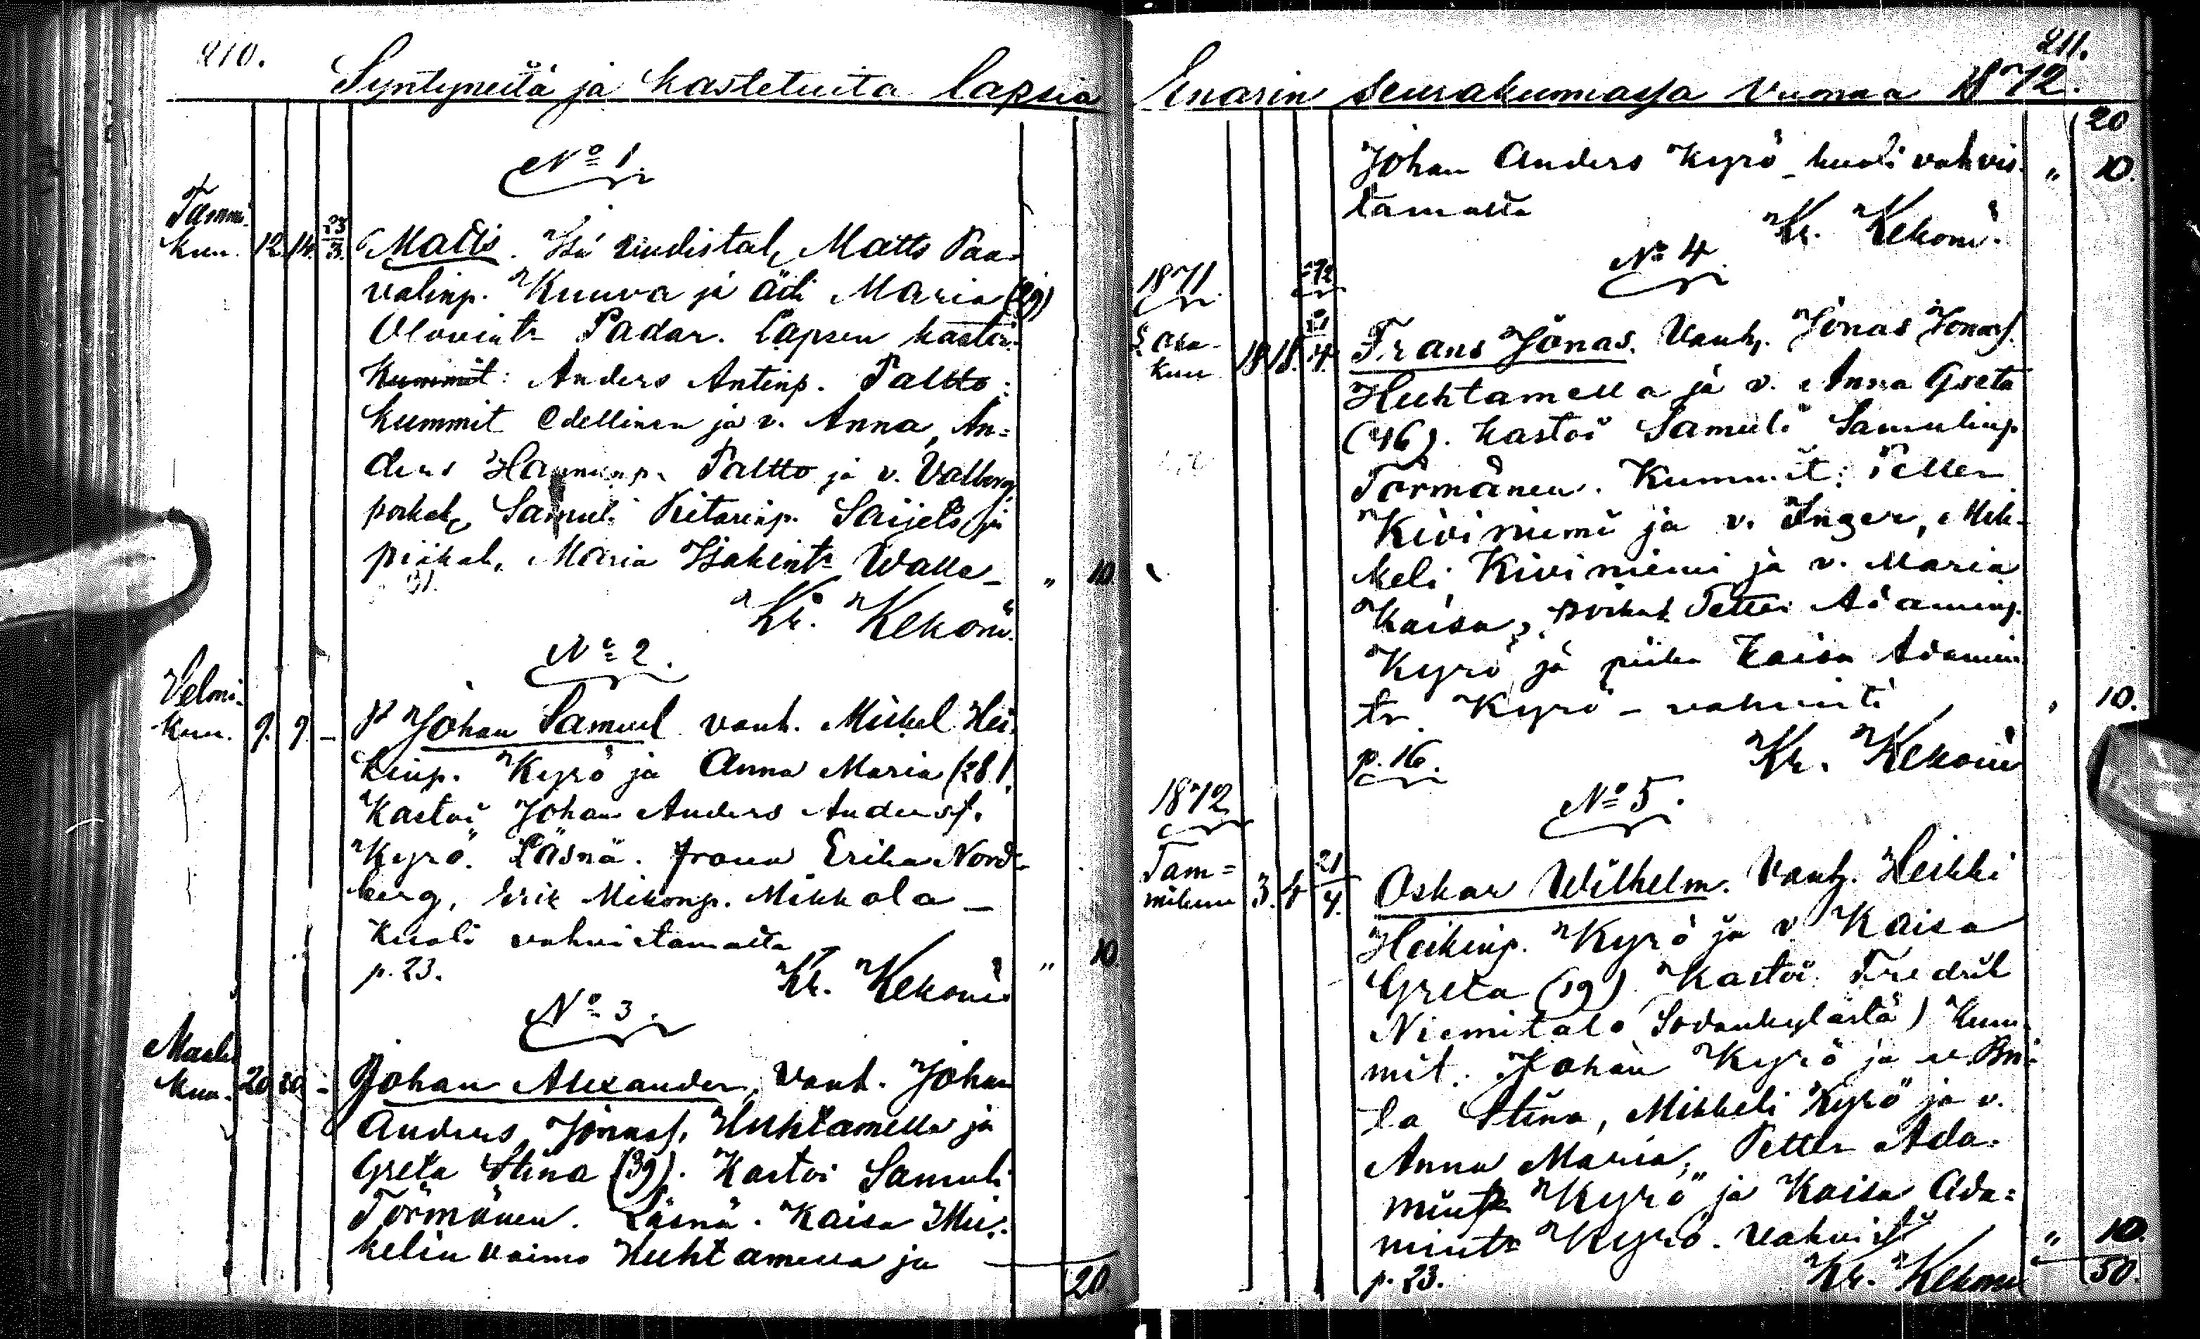 210.
Syntyneitä ja kastetuita lapsia
No 1.
Tammi-
kuu. 12. 14. 23/3. Matts. Isä uudistal. Matts Paa-
valinp. Kuuva ja äiti Maria (29)
Olovintr Padar. Lapsen kasti:
Kummit: Anders Antinp. Paltto:
kummit edellinen ja v. Anna, An=
ders Hannunp. Paltto ja v. Valborg,
poikal. Samuli Pitarinp. Saijets ja
piikal. Maria Isakintr Walle - " 10
Kr. Kekoni.
No 2.
Helmi-
kuu. 9. 9. - Johan Samuel vanh. Mickel Hei-
kinp. Kyrö ja Anna Maria (28).
Kastoi Johan Anders Andersf.
Kyrö. Läsnä. frouva Erika Nord-
berg, Erik Mikonp. Mikkola -
Kuoli vahvistamatta " 10
p. 23. Kr. Kekoni
No 3.
Maalis
kuu. 20 20 - Johan Alexander, vanh. Johan
Anders Jonasf. Huhtamella ja
Greta Stina (39). Kastoi Samuli
Törmänen. Läsnä. Kaisa Mi-
kelin vaimo Huhtamella ja
20.
211.
Enarin seurakunnassa vuonna 1872.
20
Johan Anders Kyrö - kuoli vahvis- " 10.
tamatta
Kr. Kekoni.
No 4.
1871 72
Loka-
kuu 18 18. 21/4. Frans Jonas. Vanh. Jonas Jonasf.
Huhtamella ja v. Anna Greta
(46). Kastoi Samuli Samulinp
Törmänen. Kummit: Petter
Kiviniemi ja v. Inger, Mik-
keli Kiviniemi ja v. Maria
Kaisa, poikal. Petter Adaminp.
Kyrö ja piika Kaisa Adamin
tr Kyrö - vahvisti " 10.
p. 16. Kr. Kekoni
No 5.
1872
Tam=
mikuu 3. 4 21/4. Oskar Wilhelm. Vanh. Heikki
Heikinp. Kyrö ja v Kaisa
Greta (19) Kastoi Fredrik
Niemitalo Sodankylästä) Kum-
mit. Johan Kyrö ja v Bri-
ta Stina, Mikkeli Kyrö ja v.
Anna Maria, Petter Ada-
minp Kyrö ja Kaisa Ada=
mintr Kyrö. vahvisti " 10.
p. 23. Kr. Kekoni 50.